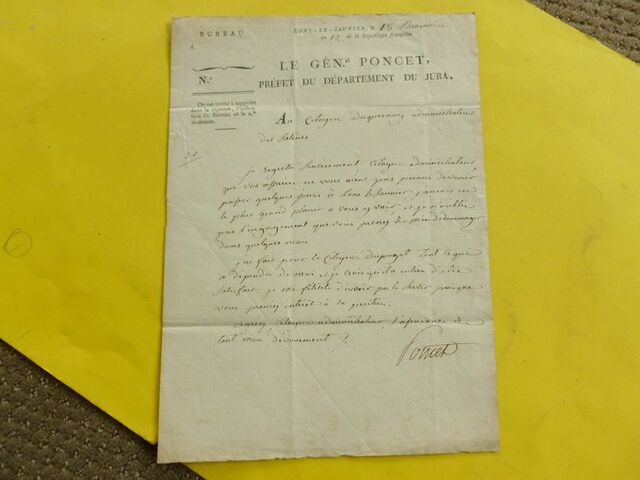 BUREAU
d
LONS-LE-SAUNIER, le 18 Brumaire
an 12 de la République française.
N.º
LE GÉN.al PONCET,
PRÉFET DU DÉPARTEMENT DU JURA,
On est invité à rappeler
dans la réponse, l'indica-
tion du Bureau et le n.º
ci-dessus.
Au Citoyen Duquesnoy, administrateur
des Salines
je regrette sincèrement Citoyen administrateur
que vos affaires ne vous aient pas permis de venir
passer quelques jours à Lons le Saunier, j'aurois eu
le plus grand plaisir à vous y voir et je n'oublie
pas l'engagement que vous prenez de m'en dédommager
dans quelques mois.
j'ai fait pour le Citoyen tout ce qui
a dépendu de moi et je crois qu'il a lieu d'être
satisfait. je me félicite d'avoir pu le servir puisque
vous prenez intérêt à sa position.
Agréez, Citoyen administrateur, l'assurance de
tout mon dévouement
Poncet